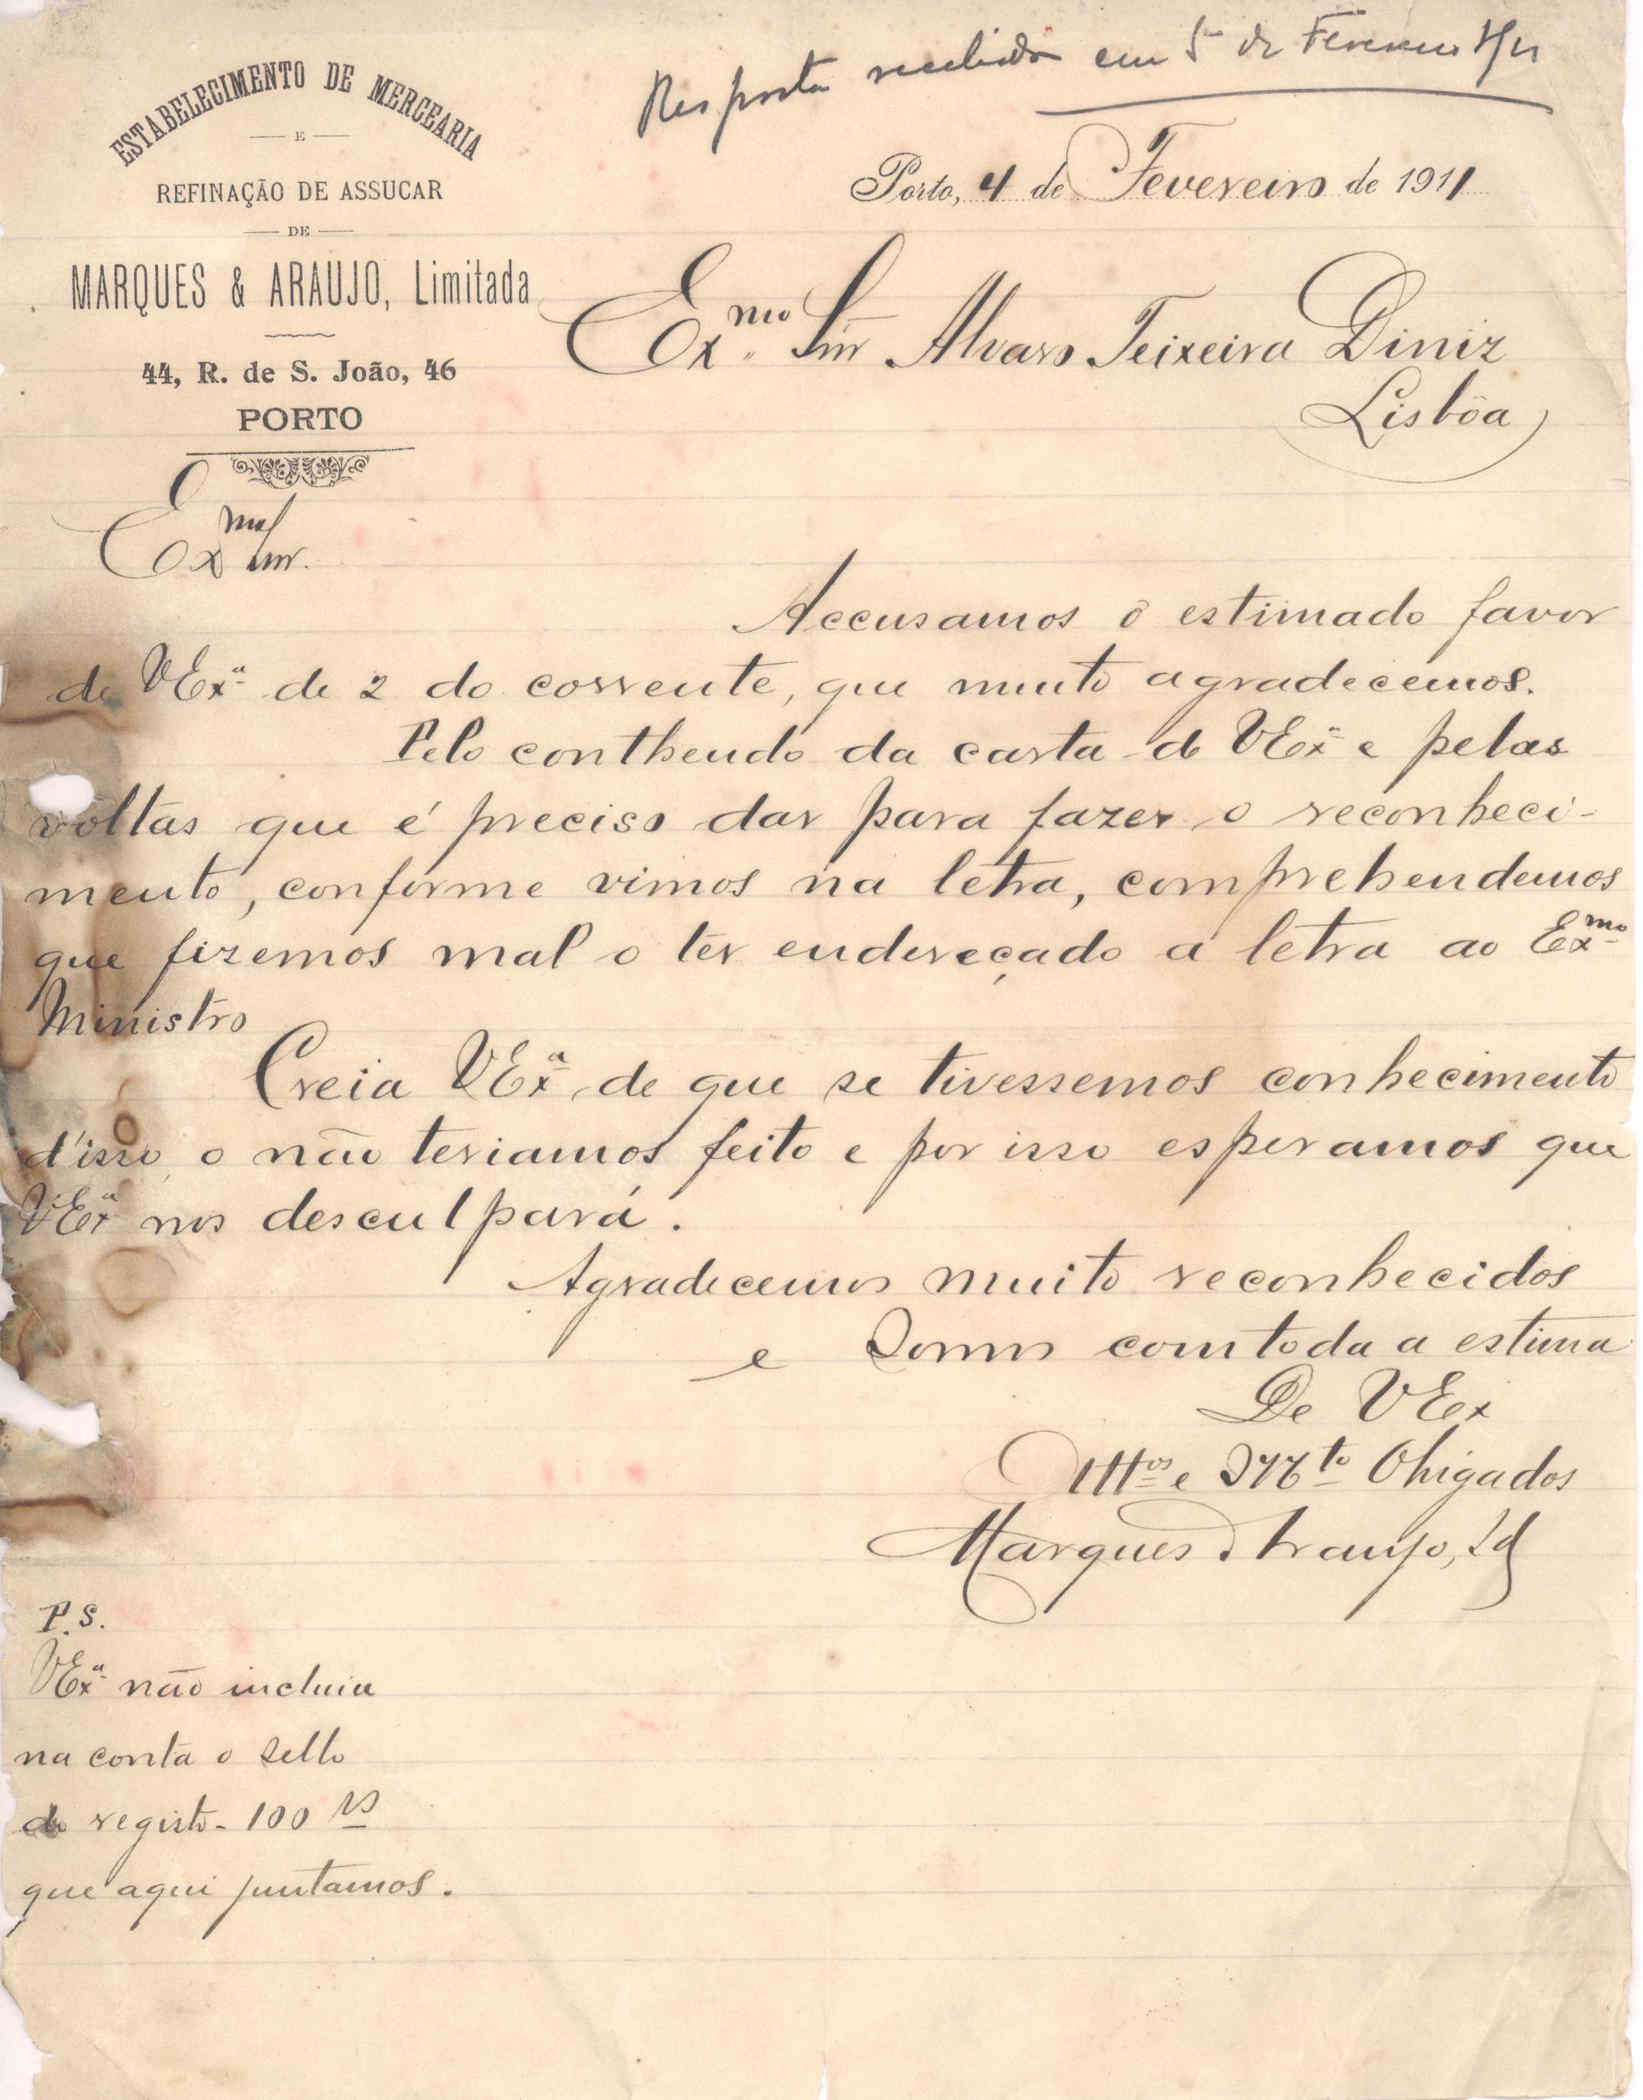 Resposta recebida em 5 de Fevereiro 911
ESTABELECIMENTO DE MERCEARIA
E
REFINAÇÃO DE ASSUCAR
DE
MARQUES & ARAUJO, Limitada
44, R. de S. João, 46
PORTO
Porto, 4 de Fevereiro de 1911
Exmo Snr Alvaro Teixeira Diniz
Lisbôa
Exmo Snr.
Accusamos o estimado favor
de VExª de 2 do corrente, que muito agradecemos.
Pelo contheudo da carta de VExª e pelas
voltas que é preciso dar para fazer o reconheci-
mento, conforme vimos na letra, comprehendemos
que fizemos mal o ter endereçado a letra ao Exmo
Ministro
Creia VExª de que se tivessemos conhecimento
d'isso, o não teriamos feito e por isso esperamos que
VExª nos desculpará.
Agradecemos muito reconhecidos
e Somos com toda a estima
De VEx
Attos e Mto Obrigados
Marques & Araujo, Ld
P.S.
VExª não incluiu
na conta o sello
do registo - 100 rs
que aqui juntamos.